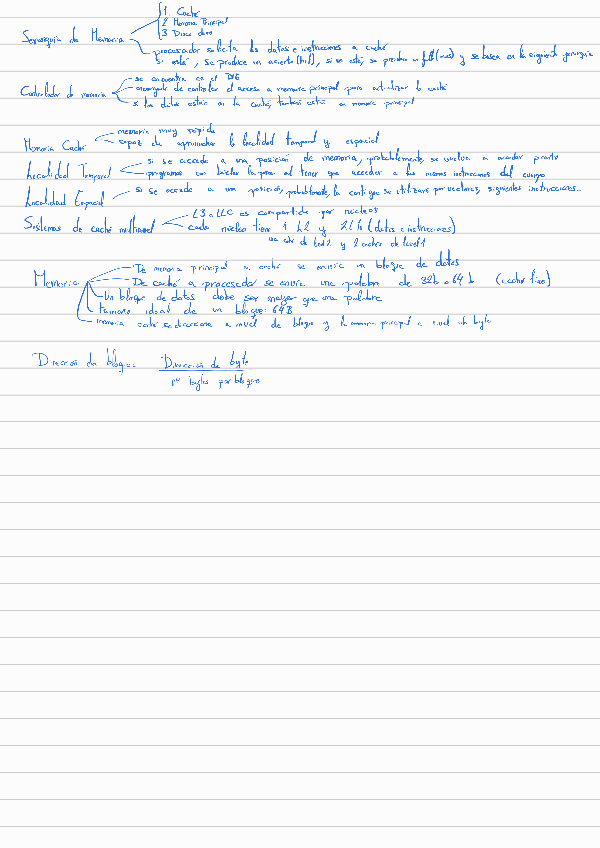 1. Caché
2 Memoria Principal
3 Disco duro
Jerarquía de Memoria
procesador solicita los datos e instrucciones a caché
si está, se produce un acierto (hit), si no está, se produce un fallo (miss) y se busca en la siguiente jerarquía
se encuentra en el
Controlador de memoria
encargado de controlar el acceso a memoria principal para actualizar la caché
si los datos están en la caché, también están en memoria principal
memoria muy rápida
Memoria Caché
capaz de aprovechar la localidad temporal y espacial
si se accede a una posición de memoria, probablemente, se vuelva a acceder pronto
Localidad Temporal
programas con bucles al tener que acceder a las mismas instrucciones del cuerpo
Localidad Espacial
si se accede a una posición, probablemente, la contigua se utilizará por vectores, siguientes instrucciones...
L3 o LLC es compartida por núcleos
Sistemas de caché multinivel
cada núcleo tiene 1 L2 y 2 L1 (datos e instrucciones)
una caché de level 2 y 2 cachés de level 1
De memoria principal a caché se envía un bloque de datos
Memoria
De caché a procesador se envía una palabra de 32b o 64b
Un bloque de datos debe ser mayor que una palabra
tamaño ideal de un bloque: 64B
memoria caché se direcciona a nivel de bloque y la memoria principal a nivel de byte
Dirección de bloque = Dirección de byte
nº bytes por bloque